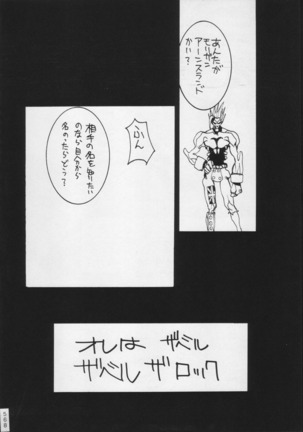 あんたが
モリガン
アーンスランド
かい？
ふん
相手の名を知りたい
のなら自分から
名のったらどう？
オレは ザベル
ザベル ザ ロック
568